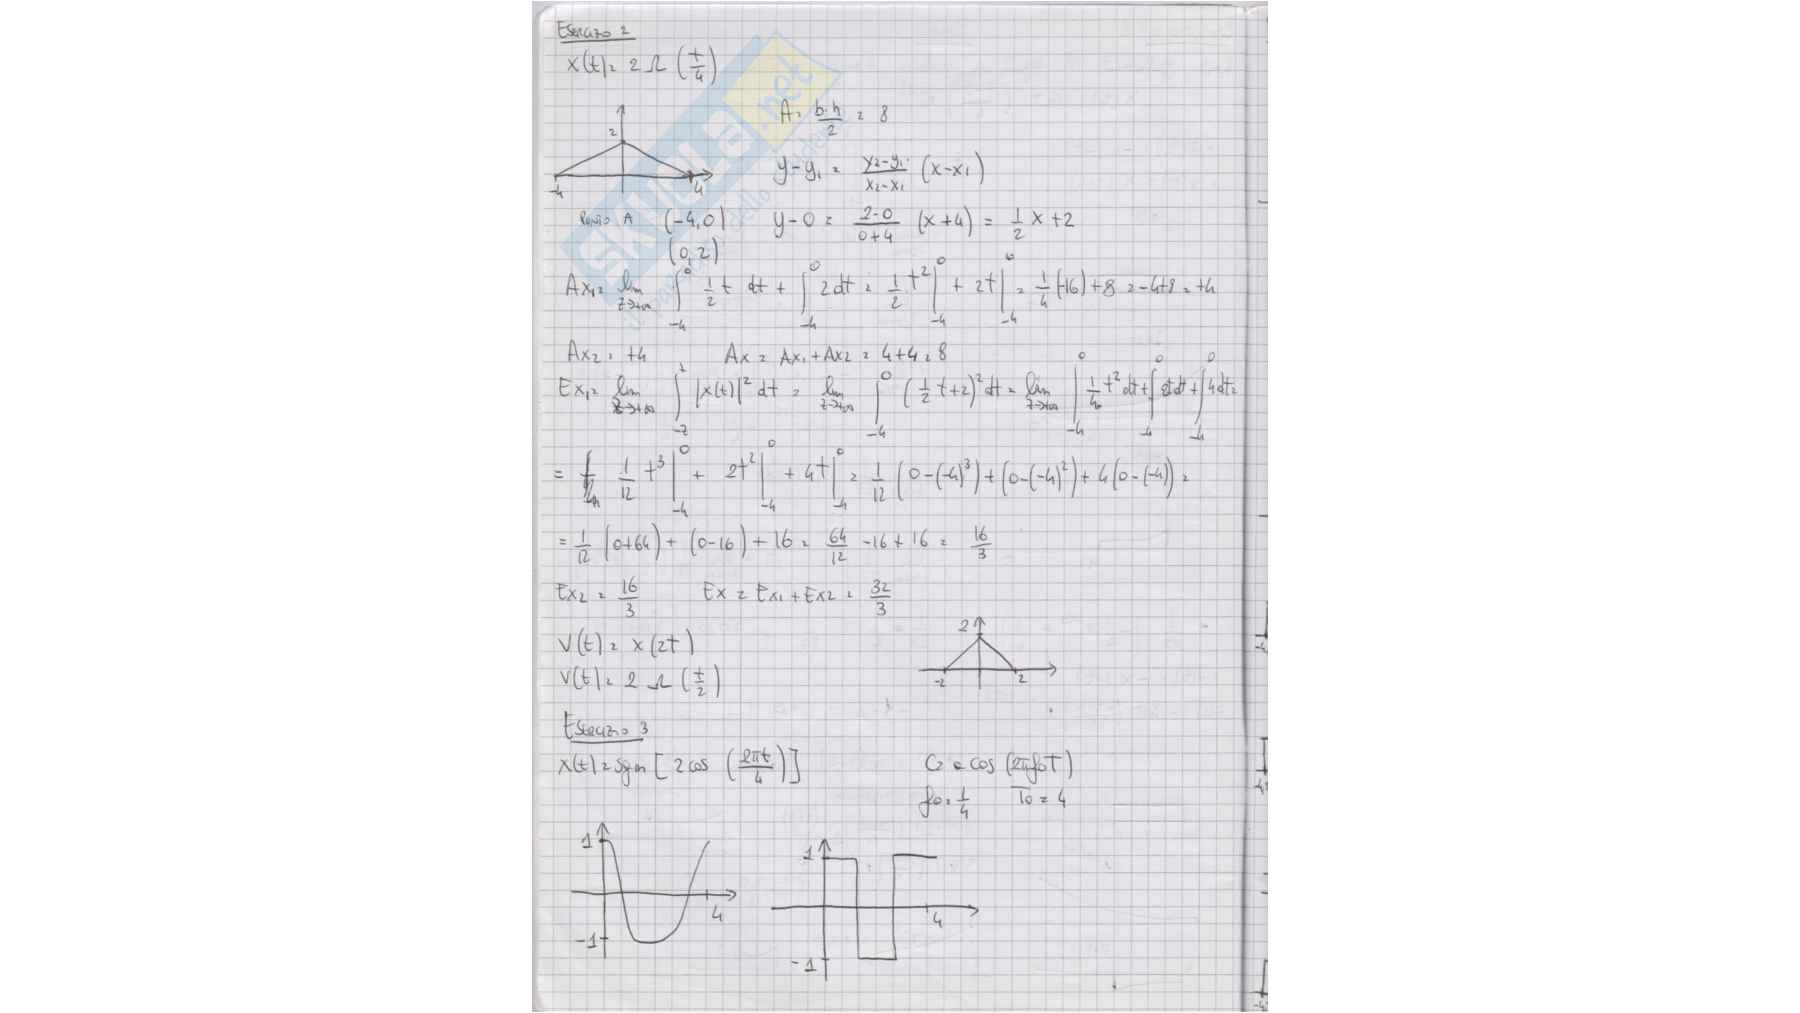 Esercizio 2
x(t) = 2 Ω (t/4)
A = b·h/2 = 8
2
-4 4
y-y1 = y2-y1/x2-x1 (x-x1)
Punto A (-4,0) y-0 = 2-0/0+4 (x+4) = 1/2 x+2
(0,2)
Ax1 = lim z→+∞ ∫-4^0 1/2 t dt + ∫-4^0 2dt = 1/2 t² |-4^0 + 2t |-4^0 = 1/4 (-16) +8 = -4+8 = +4
Ax2 = +4 Ax = Ax1+Ax2 = 4+4 = 8
Ex1 = lim z→+∞ ∫-z^z |x(t)|² dt = lim z→+∞ ∫-4^0 (1/2 t+2)² dt = lim z→+∞ ∫-4^0 1/4 t² dt + ∫-4^0 2t dt + ∫-4^0 4dt =
= 1/12 t³ |-4^0 + 2t² |-4^0 + 4t |-4^0 = 1/12 (0-(-4)³) + (0-(-4)²) + 4(0-(-4)) =
= 1/12 (0+64) + (0-16) + 16 = 64/12 -16 + 16 = 16/3
Ex2 = 16/3 Ex = Ex1+Ex2 = 32/3
V(t) = x(2t)
2
-2 2
V(t) = 2 Ω (t/2)
Esercizio 3
x(t) = sgn [2 cos (2πt/4)] cos (2πf0T)
f0 = 1/4 T0 = 4
1 4 -1
1 4 -1
SKUOLA.net